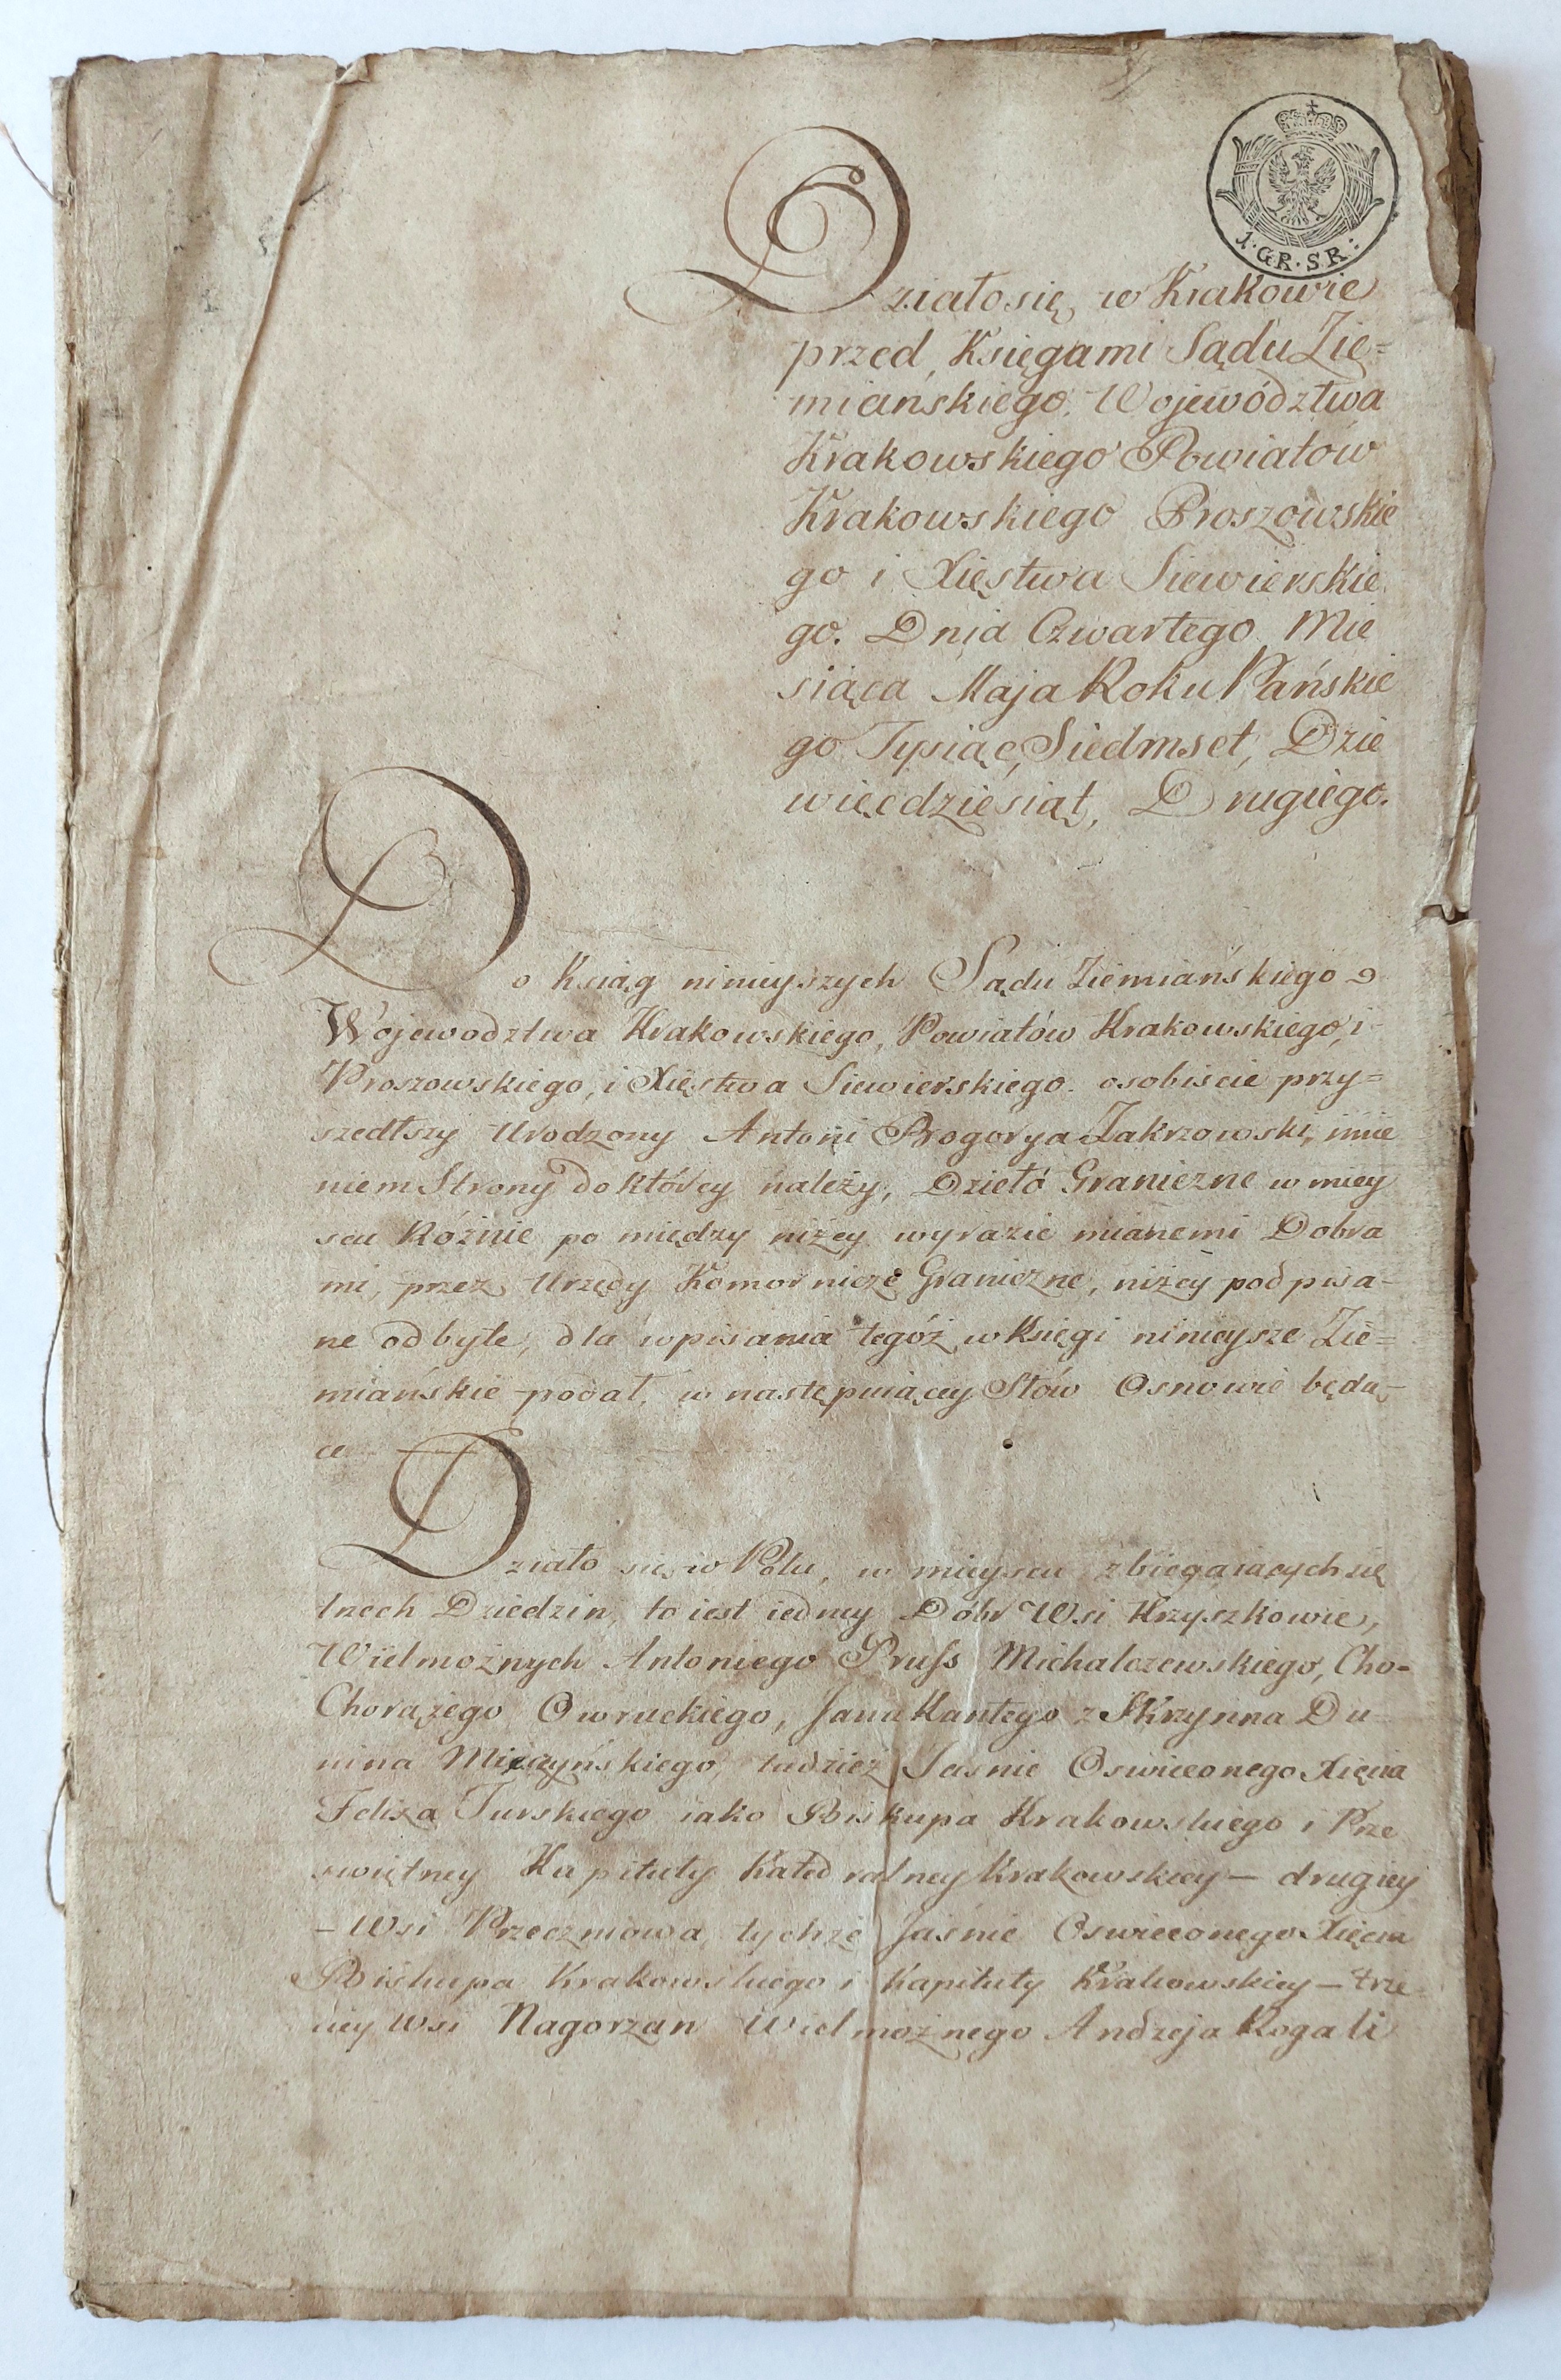 1. GR. S.R:
Działo się w Krakowie
przed Księgami Sądu Zie=
miańskiego, Województwa
Krakowskiego Powiatów
Krakowskiego Proszowskie
go i Xięstwa Siewierskie
go. Dnia Czwartego Mie
siąca Maja Roku Pańskie
go Tysiąc, Siedmset, Dzie
więćdziesiąt, Drugiego.
Do Ksiąg ninieyszych Sądu Ziemiańskiego
Wojewodztwa Krakowskiego, Powiatów Krakowskiego, i
Proszowskiego, i Xięstwa Siewierskiego osobiscie przy=
szedłszy Urodzony Antoni Bogorya Zakrzowski, imie
niem Strony do którey należy, Dzieło Graniczne w miey
scu Różnie po między niżey wyrazić mianemi Dobra
mi, przez Urzędy Komornicze Graniczne, niżey podpisa-
ne odbyte, dla wpisania tegóż w Księgi ninieysze Zie=
miańskie podał, w następuiącey Słów Osnowie będą-
ce
Działo się w Polu, w mieyscu zbiegaiących się
trzech Dziedzin, to iest iedney Dóbr Wsi Krzyszkowic,
Wielmożnych Antoniego Pruss Michalczewskiego, Cho=
Chorążego Owruckiego, Jana Kantego z Skrzynna Du
nina Mieszyńskiego, tudzież Jasnie Oswieconego Xięcia
Felixa Turskiego iako Biskupa Krakowskiego i Prze
swiętney Kapituły Katedralney Krakowskiey – drugiey
– Wsi Przeczniowa tychże Jaśnie Oswieconego Xięcia
Biskupa Krakowskiego i Kapituły Krakowskiey – trze
ciey Wsi Nagorzan Wielmożnego Andrzeja Rogali